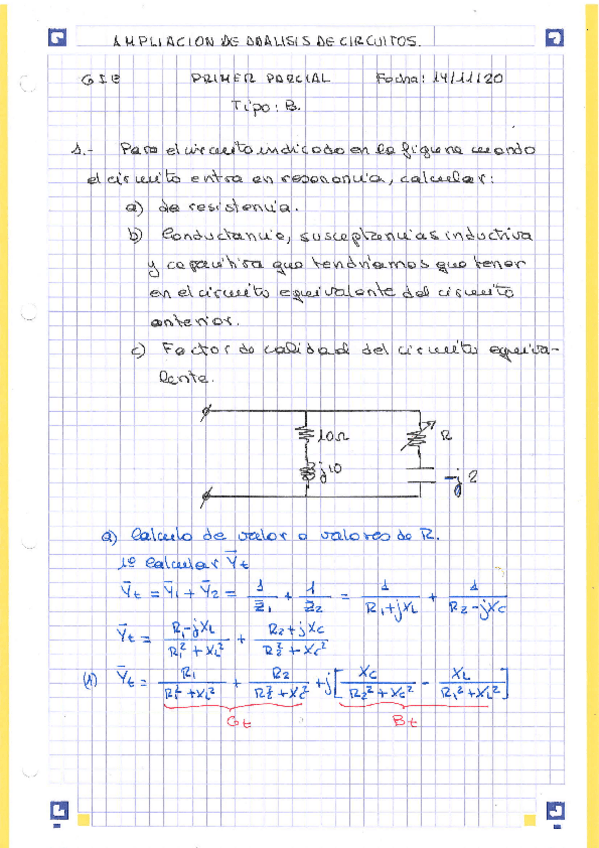 AMPLIACION DE ANALISIS DE CIRCUITOS.
GIE PRIMER PARCIAL Fecha: 14/11/20
Tipo: B.
1.- Para el circuito indicado en la figura cuando
el circuito entra en resonancia, calcular:
a) la resistencia.
b) Conductancia, susceptancias inductiva
y capacitiva que tendriamos que tener
en el circuito equivalente del circuito
anterior.
c) Factor de calidad del circuito equiva-
lente.
10Ω R
j10 -j2
a) Calculo de valor o valores de R.
1º Calcular Y̅t
Y̅t = Y̅1 + Y̅2 = 1/Z̅1 + 1/Z̅2 = 1/(R1+jXL) + 1/(R2-jXc)
Y̅t = (R1-jXL)/(R1²+XL²) + (R2+jXc)/(R2²+Xc²)
(1) Y̅t = R1/(R1²+XL²) + R2/(R2²+Xc²) + j[Xc/(R2²+Xc²) - XL/(R1²+XL²)]
Gt Bt